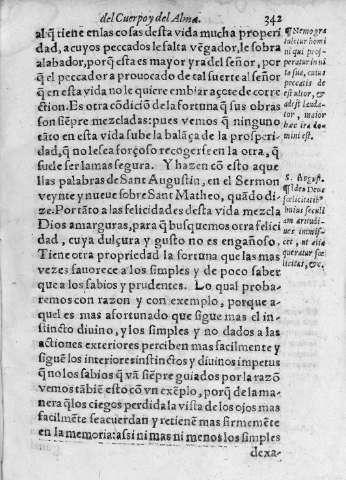 del Cuerpo y del Alma.
342
al q̃ tiene en las cosas desta vida mucha properi
dad, a cuyos peccados le falta vẽgador, le sobra
alabador, porq̃ esta es mayor yra del señor, por
q̃ el peccador a prouocado de tal suerte al señor
q̃ en esta vida no le quiere embiar açote de corre
ction. Es otra cõdiciõ de la fortuna q̃ sus obras
son siẽpre mezcladas: pues vemos q̃ ninguno
eãto en esta vida sube la balãça de la prosperi-
dad, q̃ no le sea forçoso recogerse en la otra, q̃
suele ser la mas segura. Y hazen cõ esto aque
llas palabras de Sant Augustin, en el Sermon
veynte y nueue sobre Sant Matheo, quãdo di
ze: Por tãto a las felicidades desta vida mezcla
Dios amarguras, para q̃ busquemos otra felici
dad, cuya dulçura y gusto no es engañoso.
Tiene otra propriedad la fortuna que las mas
vezes fauorece a los simples y de poco saber
que a los sabios y prudentes. Lo qual proba-
remos con razon y con exemplo, porque a-
quel es mas afortunado que sigue mas el in-
stincto diuino, y los simples y no dados a las
actiones exteriores perciben mas facilmente y
siguẽ los interiores instinctos y diuinos impetus
q̃ no los sabios q̃ van siẽpre guiados por la razõ
vemos tãbiẽ esto cõ vn exẽplo, porq̃ de la ma-
nera q̃ los ciegos perdida la vista de los ojos mas
facilmẽte se acuerdan y retienẽ mas firmemẽte
en la memoria: assi ni mas ni menos los simples
dexa-
¶ Nemo gra
tuletur homi
ni qui pros-
peratur in vi
ta sua, cuius
peccatis de
est vltor, &
adest lauda-
tor, maior
hæc ira do-
mini est.
S. August.
¶ Ideo Deus
fœlicitatib9
huius seculi
am aritudi-
nes inmis-
cet, vt alia
quæratur fœ
licitas, &c.